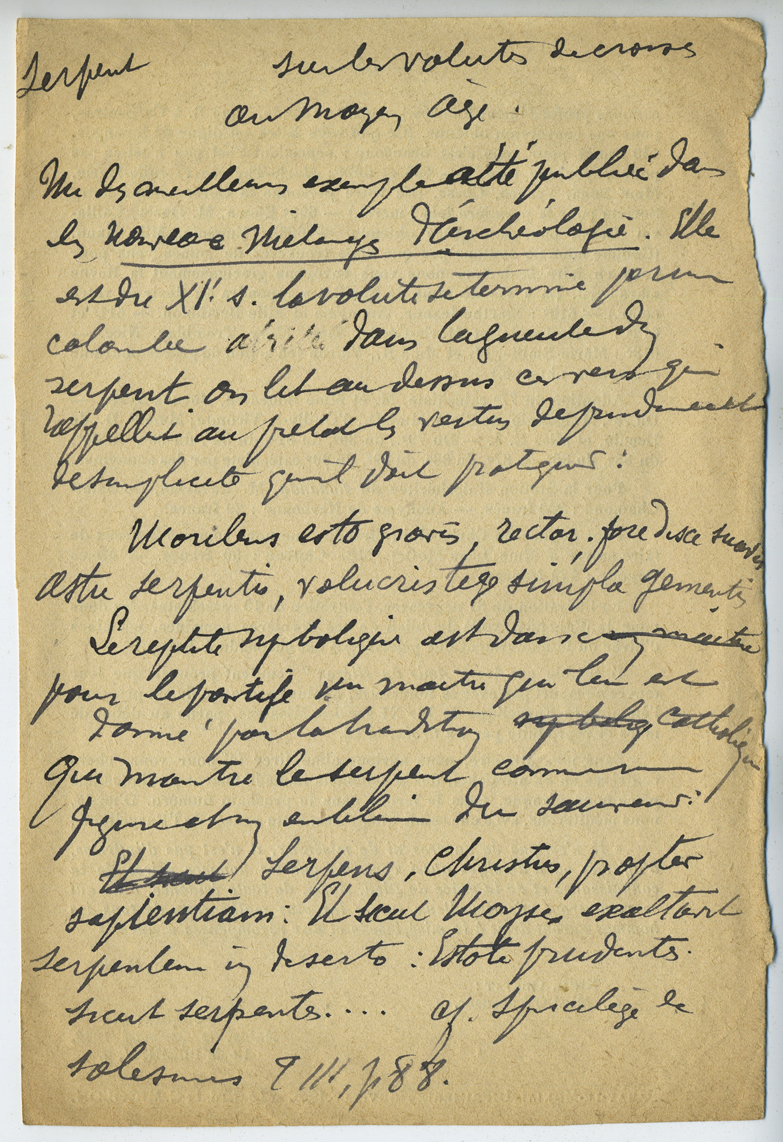 Serpent sur les volutes de crosses
au Moyen Age.
Un des meilleurs exemple a été publié dans
les Nouveaux Mélanges d'Archéologie. Elle
est du XIe s. la volute se termine par une
colombe dans la gueule du
serpent on lit au dessus ce vers qui
rappellent au prélat les vertus de prudence et
de simplicité qu'il doit pratiquer :
Moribus esto gravis, rector. fore disce suavis
Astu serpentis, volucris tege simpla gementis
Le reptile symbolique est dans
pour le pontife un maitre qui lui est
donné par la tradition symboliq catholique
qui montre le serpent comme une
figure et un emblème du sauveur :
Et sicut Serpens, Christus, propter
sapientiam : Et sicut Moyses exaltavit
serpentem in deserto : Estote prudentes
sicut serpentes.... cf. Spicilège de
solesmes T III, p 88.